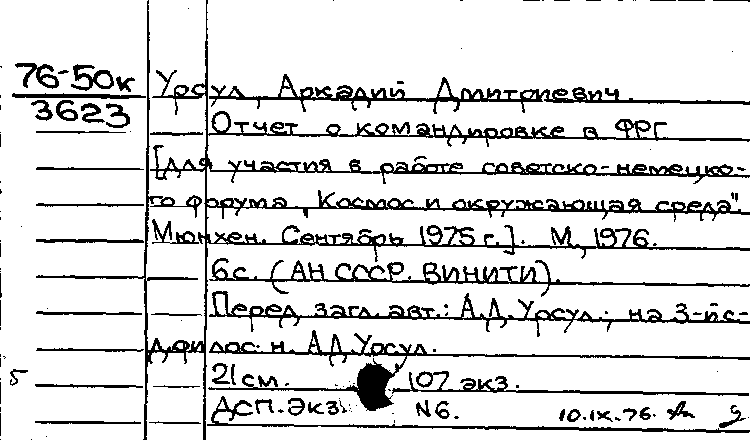 76-50к
3623
Урсул, Аркадий Дмитриевич.
Отчет о командировке в ФРГ
[для участия в работе советско-немецко-
го форума „Космос и окружающая среда".
Мюнхен. Сентябрь 1975 г.]. М., 1976.
6 с. (АН СССР. ВИНИТИ).
Перед загл. авт.: А.Д. Урсул; на 3-й с-
д. филос. н. А.Д. Урсул.
5 21 см. 107 экз.
ДСП. Экз. N6. 10.IX.76.